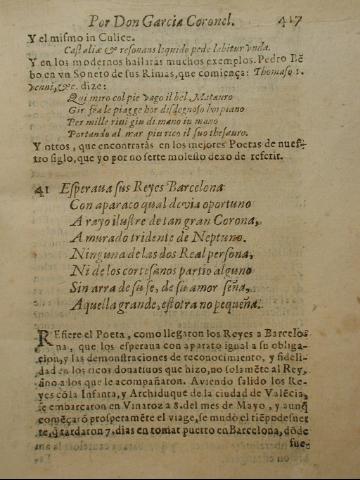 Por Don Garcia Coronel. 417
Y el mismo in Culice.
Castaliæ & resonans liquido pede labitur vnda.
Y en los modernos hallarás muchos exemplos. Pedro Bē
bo en vn Soneto de sus Rimas, que comiença: Thomaso i.
venni, &c. dize:
Qui miro col pie vago il bel Metauro
Gir fra le piagge hor disdegnoso hor piano
Per mille rivi giu di mano in mano
Portando al mar piu rico il suo thesauro.
Y otros, que encontrarás en los mejores Poetas de nues-
tro siglo, que yo por no serte molesto dexo de referir.
41 Esperaua sus Reyes Barcelona
Con aparato qual devia oportuno
A rayo ilustre de tan gran Corona,
A murado tridente de Neptuno.
Ninguna de las dos Real persona,
Ni de los cortesanos partio alguno
Sin arra de su fe, de su amor seña,
Aquella grande, estotra no pequeña.
REfiere el Poeta, como llegaron los Reyes a Barcelo-
na, que los esperaua con aparato igual a su obliga-
cion, y las demonstraciones de reconocimiento, y fideli-
dad en los ricos donativos que hizo, no solamēte al Rey,
sino a los que le acompañaron. Aviendo salido los Re-
yes cō la Infanta, y Archiduque de la ciudad de Valēcia,
se embarcaron en Vinaroz a 8. del mes de Mayo, y aunq̄
comēçarō prosperamēte el viage, se mudó el tiēpo de sue
rte, q̄ tardaron 7. dias en tomar puerto en Barcelona, dōde
fue-